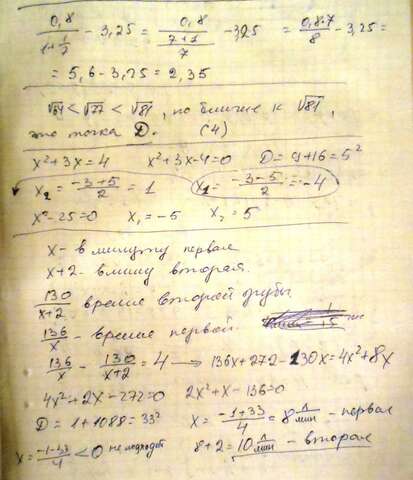 0,8/(1+1/7) - 3,25 = 0,8/((7+1)/7) - 3,25 = 0,8·7/8 - 3,25 =
= 5,6 - 3,25 = 2,35
√64 < √77 < √81, но ближе к √81,
это точка D. (4)
x²+3x=4 x²+3x-4=0 D=9+16=5²
x₂ = (-3+5)/2 = 1 x₁ = (-3-5)/2 = -4
x²-25=0 x₁=-5 x₂=5
x - в минуту первая
x+2 - в мину вторая.
130/(x+2) время второй трубы
136/x - время первой.
136/x - 130/(x+2) = 4 → 136x+272-130x=4x²+8x
4x²+2x-272=0 2x²+x-136=0
D=1+1088=33² x = (-1+33)/4 = 8 л/мин - первая
x = (-1-33)/4 < 0 не подходит 8+2=10 л/мин - вторая